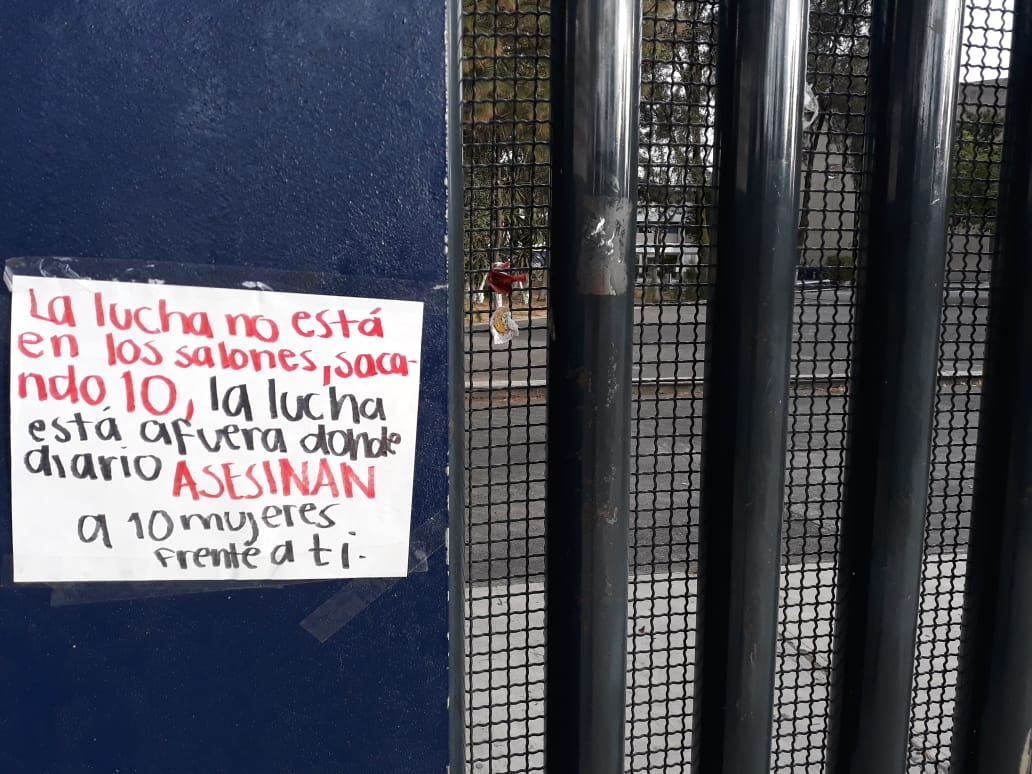 La lucha no está
en los salones, saca-
ndo 10, la lucha
está afuera donde
diario ASESINAN
a 10 mujeres
frente a ti.